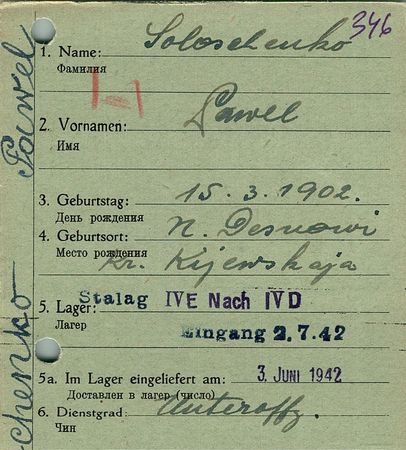 346
1. Name: Soloschenko
Фамилия
2. Vornamen: Pawel
Имя
3. Geburtstag: 15.3.1902.
День рождения
4. Geburtsort: N. Desnowi
Место рождения Kr. Kijewskaja
Stalag IVE Nach IVD
5. Lager:
Лагер
Eingang 2.7.42
5a. Im Lager eingeliefert am: 3. JUNI 1942
Доставлен в лагер (число)
6. Dienstgrad: Unteroffz.
Чин
chenko Pawel